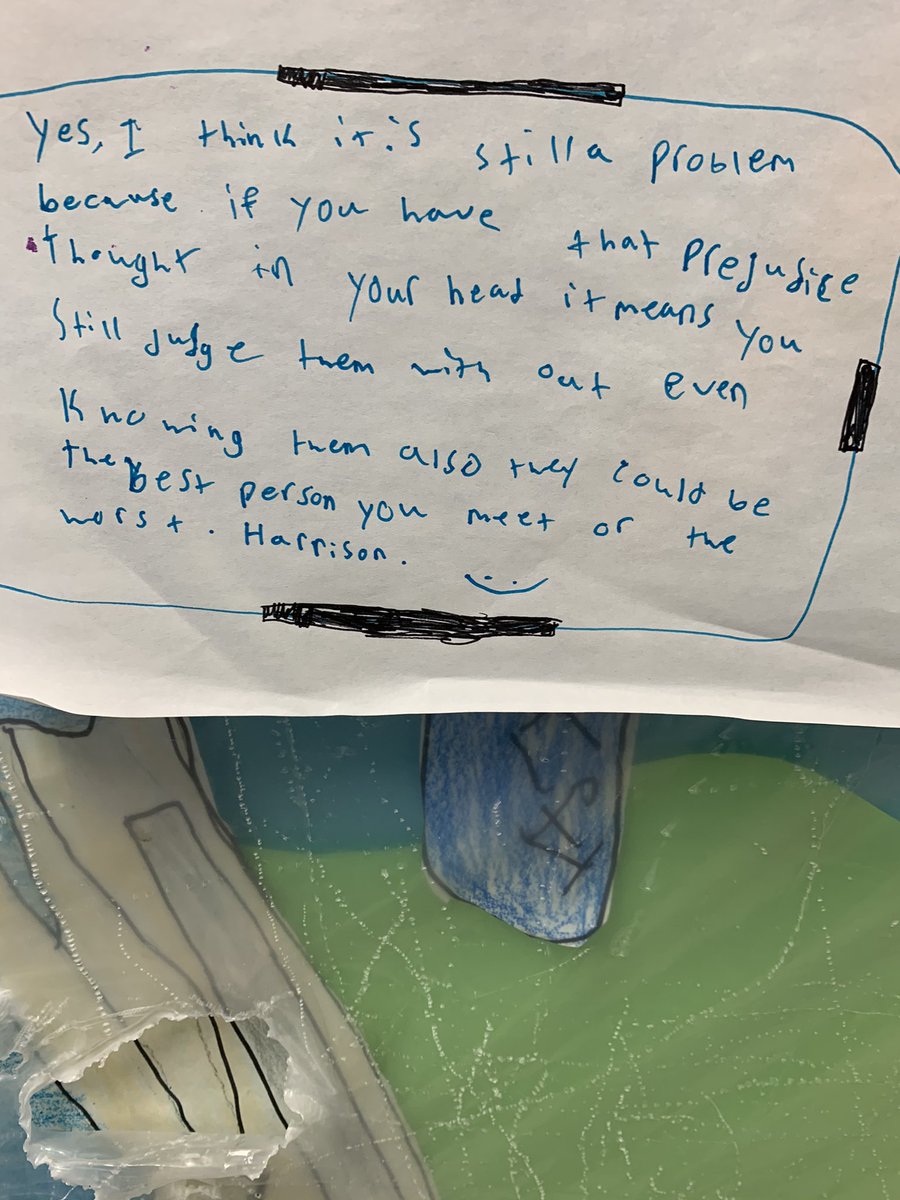 Yes, I think it is still a problem
because if you have that prejudice
thought in your head it means you
still judge them with out even
knowing them also they could be
the best person you meet or the
worst. Harrison.